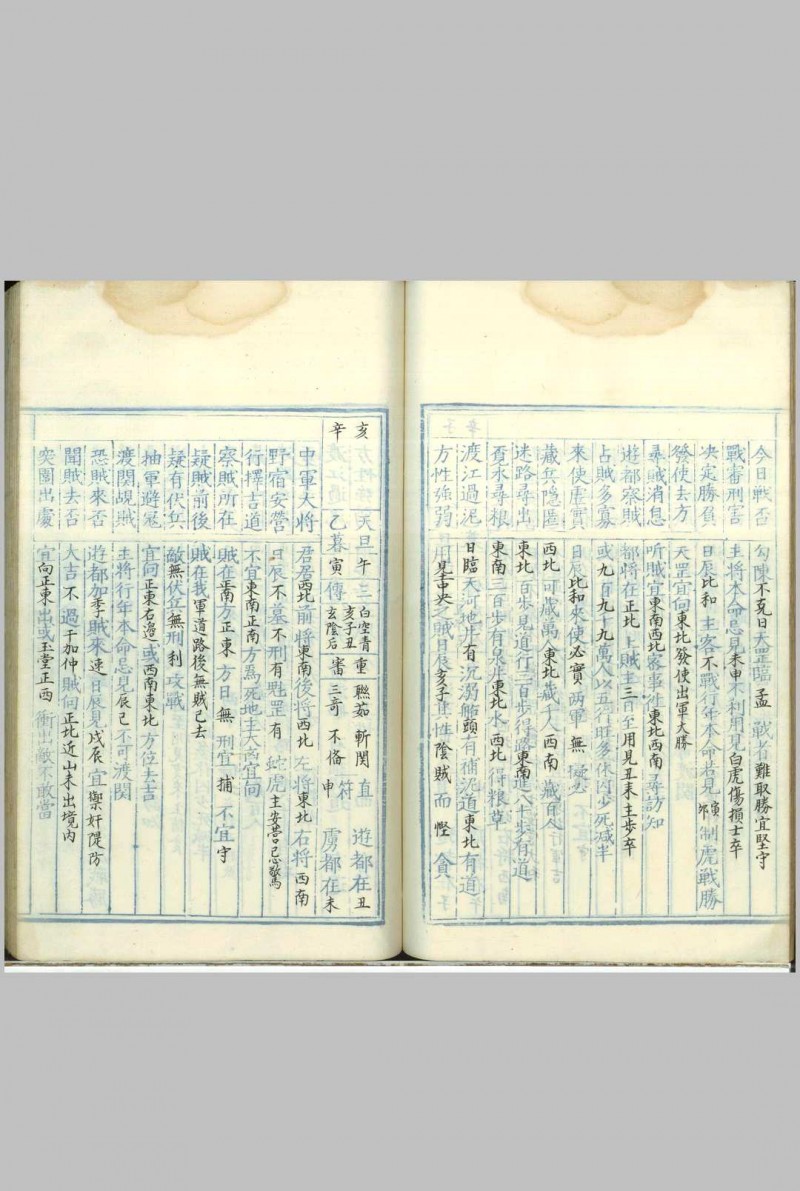 今日戰否 勾陳不尅日天罡臨孟戰者難取勝宜堅守
戰審刑害 主將本命忌見未申不利用見白虎傷損士卒
決定勝負 日辰比和主客不戰行年本命若見寅卯制虎戰勝
發使去方 天罡宜向東北發使出軍大勝
尋賊消息 听賊宜東南西北密事往東北西南尋訪知
遊都察賊 都將在正北上賊主三日至用見丑未主步卒
占賊多寡 或九百九十九萬人以五行旺多休囚少死減半
來使虛實 日辰比和來使必實两軍無
藏兵隐匿 西北可歲萬人東北藏千人西南藏百人
迷路尋出 東北百步見道行三百步得路東南進八十步有道
覔水尋根 東南三百步有泉步東北水西北得粮草
渡江過泥 日臨天河地井有沉溺船頭有補泥道東北有道
方性強弱 用見中央之賊日辰亥子其性陰賊而慳貪
亥 天旦午三 白空青 亥子丑 重 聮茹 斬関 直 遊都在丑
辛 乙暮寅傳 玄陰后 審 三奇 不俻 申 符 虜都在未
中軍大將 君居西北前將東南後將西北左將東北右將西南
野宿安營 日辰不墓不刑有魁罡有蛇虎主安營已惊驚
行擇吉道 不宜東南正南方爲死地主大凶宜向
察賊所在 賊在正南方正東方日無刑宜捕不宜守
疑賊前後 賊在我軍道路後無賊已去
疑有伏兵 敵無伏兵無刑利攻戰
抽軍避寇 宜向正東右邊或西南東北方位去吉
渡関覘賊 主將行年本命忌見辰已不可渡関
恐賊來否 遊都加季賊來速日辰見戊辰宜禦奸隄防
聞賊去否 大吉不過于加仲賊向正北近山未出境内
突圍出處 宜向正東出或玉堂正西衝出敵不敢當